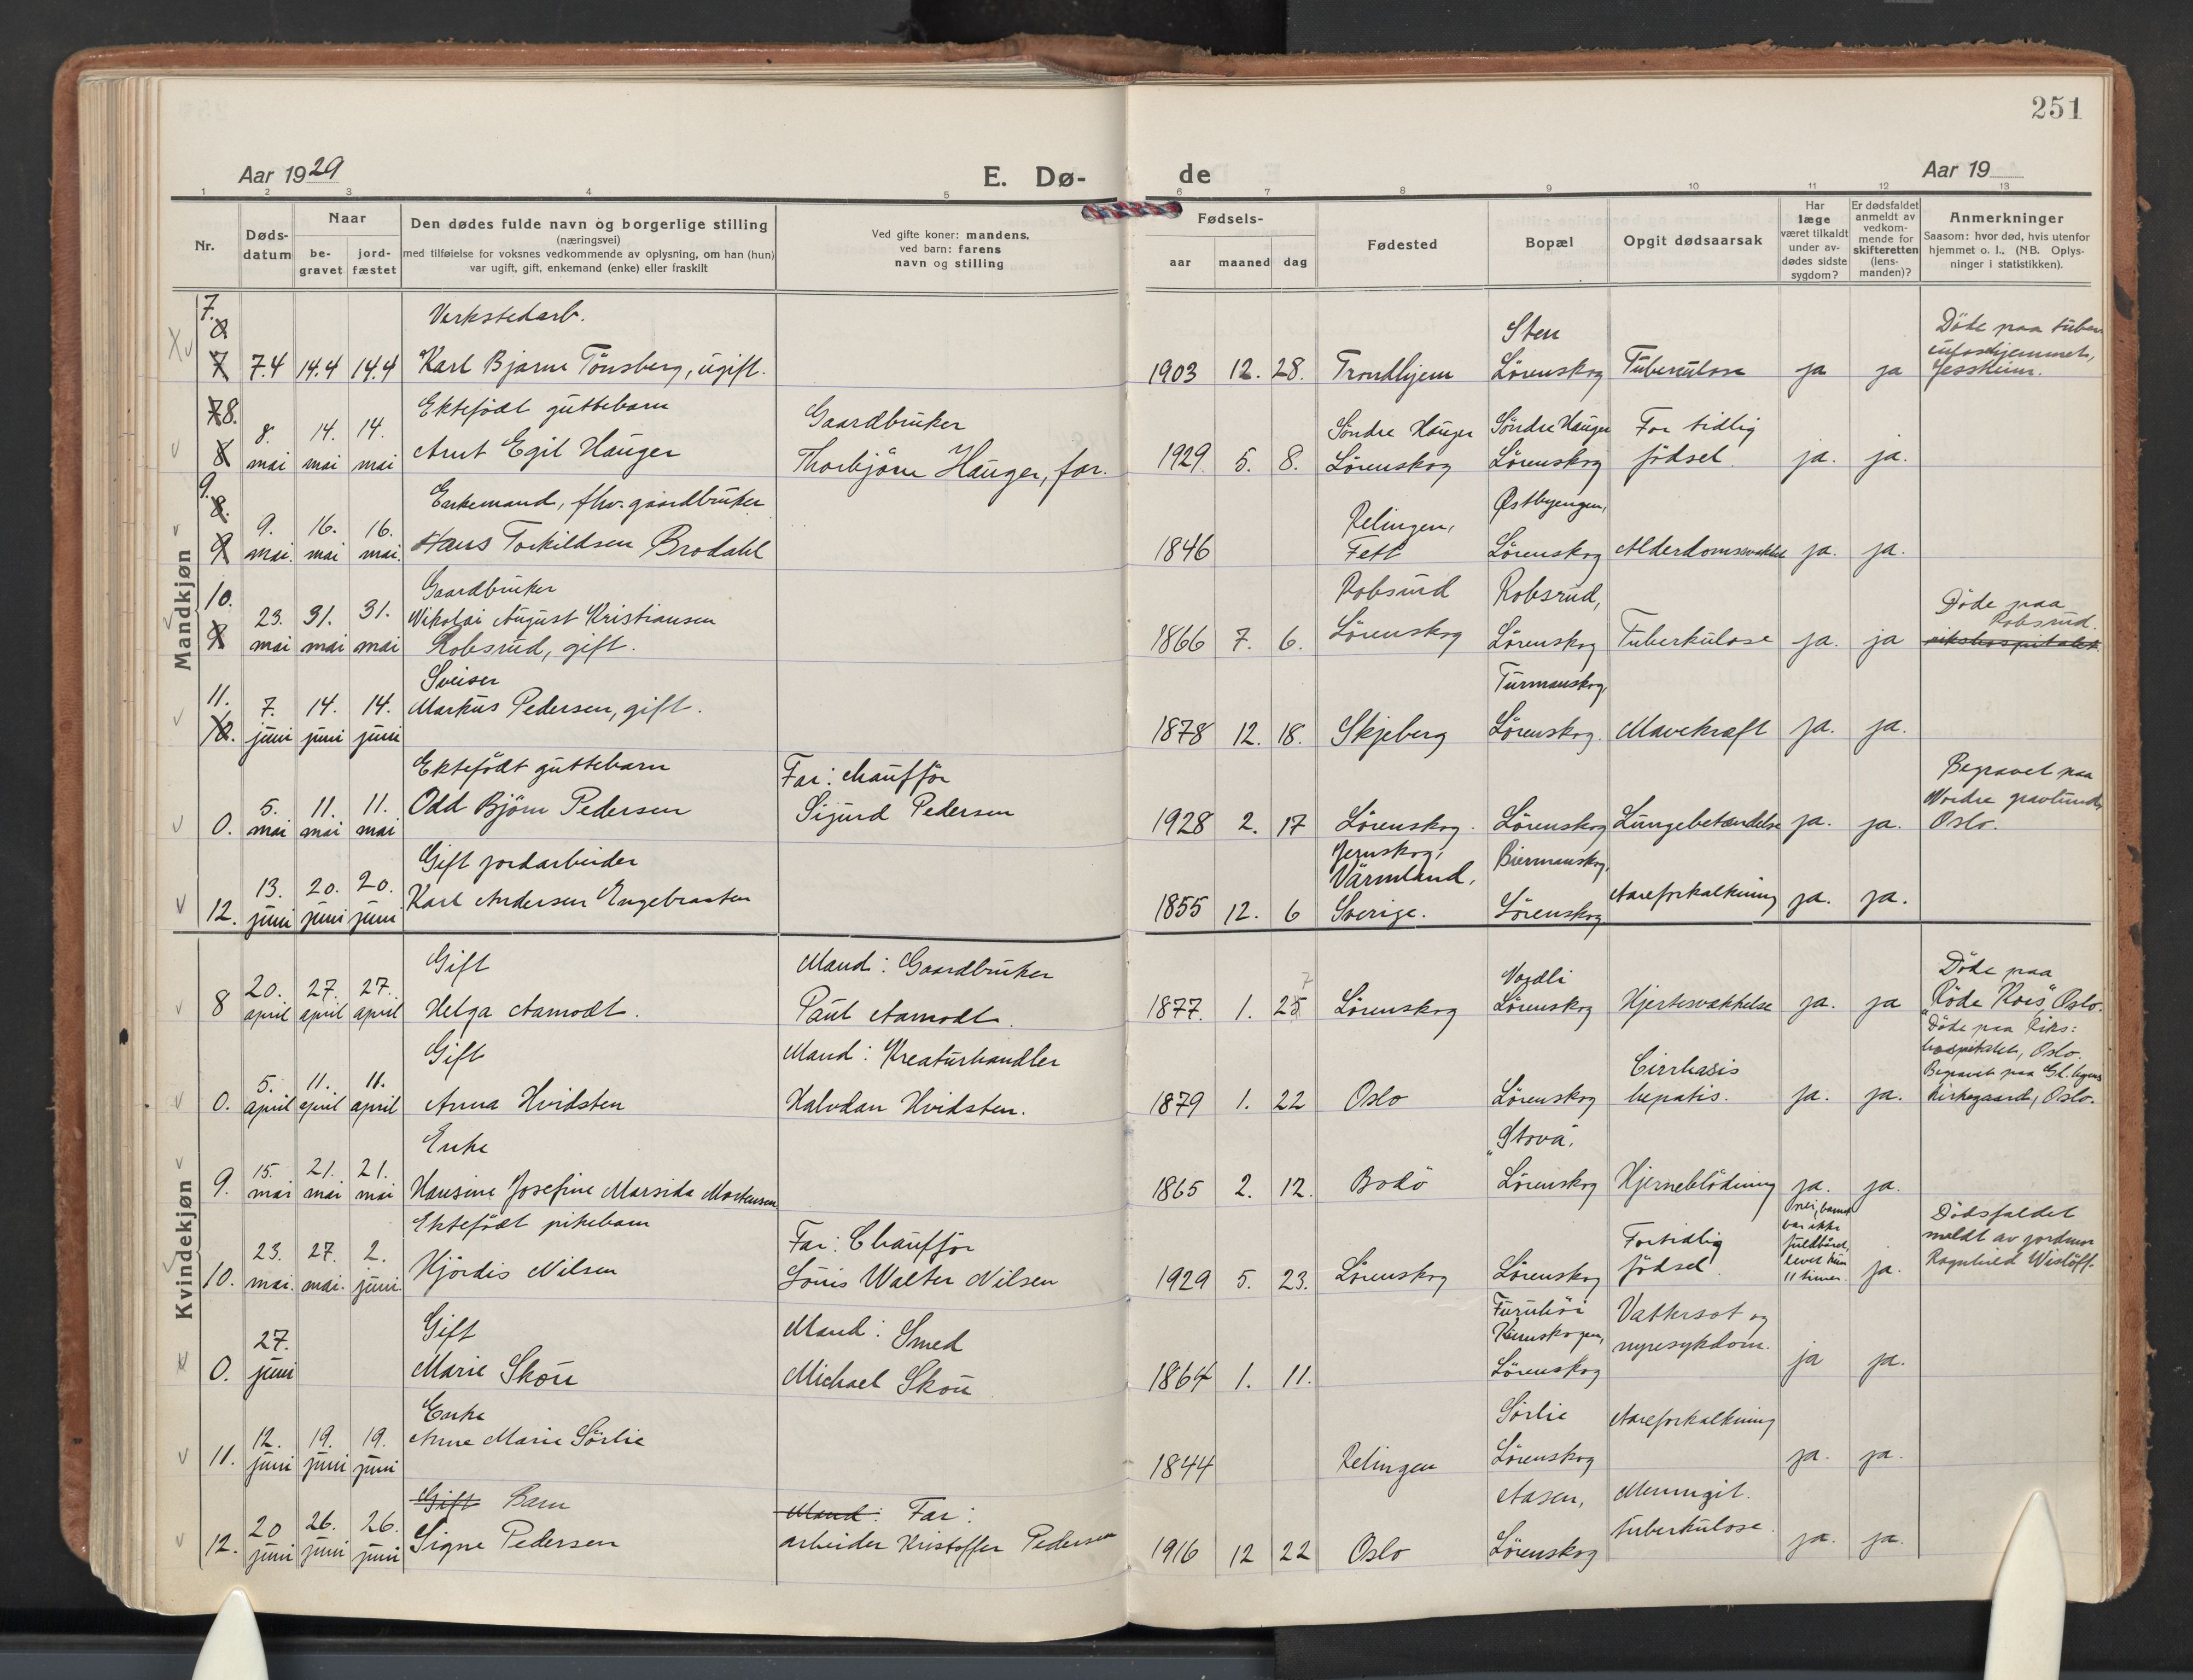 251
Aar 1929
E. Dø-
de
Aar 19
1 2 3 4 5 6 7 8 9 10 11 12 13
Nr.
Døds-
datum
Naar
be-
gravet
jord-
fæstet
Den dødes fulde navn og borgerlige stilling
(næringsvei)
med tilføielse for voksnes vedkommende av oplysning, om han (hun)
var ugift, gift, enkemand (enke) eller fraskilt
Ved gifte koner: mandens,
ved barn: farens
navn og stilling
Fødsels-
aar maaned dag
Fødested
Bopæl
Opgit dødsaarsak
Har
læge
været tilkaldt
under av-
dødes sidste
sygdom?
Er dødsfaldet
anmeldt av
vedkom-
mende for
skifteretten
(lens-
manden)?
Anmerkninger
Saasom: hvor død, hvis utenfor
hjemmet o. l., (NB. Oplys-
ninger i statistikken).
Mandkjøn
7.
8
Verkstedarb.
Sten
Døde paa tuber-
culosehjemmet,
7 7.4 14.4 14.4 Karl Bjarne Tønsberg, ugift. 1903 12. 28. Trondhjem Lörenskog Tuberculose ja ja Jessheim.
7 8. Ektefödt guttebarn
Gaardbruker
Söndre Hauger Söndre Hauger For tidlig
8. 14. 14.
8 mai mai mai Arnt Egil Hauger Thorbjörn Hauger, far. 1929 5. 8. Lörenskog Lörenskog födsel. ja. ja.
9.
8.
Enkemand, fhv. gaardbruker
Østbyengen,
9. 16. 16. Relingen,
9 mai. mai mai. Hans Torkildsen Brodahl 1846 Fett Lörenskog Alderdomssvakkelse ja. ja.
10. Gaardbruker
Robsrud Robsrud,
Döde paa
Robsrud.
23. 31. 31. Nikolai August Kristiansen
9 mai mai mai Robsrud, gift. 1866 7. 6. Lörenskog Lörenskog Tuberkulose ja. ja rikshospitalet.
Sveiser
Turmanskog,
11. 7. 14. 14. Markus Pedersen, gift.
10. juni juni juni 1878 12. 18. Skjeberg Lörenskog. Mavekræft ja. ja.
Ektefödt guttebarn Far: chaufför
Begravet paa
5. 11. 11. Odd Björn Pedersen Sigurd Pedersen Nordre gravlund,
0. mai mai mai 1928 2. 17 Lörenskog. Lörenskog Lungebetændelse ja. ja. Oslo.
Gift jordarbeider
Jernskog, Biermanskog,
Värmland,
13. 20. 20. Karl Andersen Engebraaten
12. juni juni juni 1855 12. 6 Sverige. Lörenskog Aareforkalkning ja. ja.
Kvindekjøn
Gift Mand: Gaardbruker
Vogdli
Döde paa
20. 27. 27.
8 april april april Helga Aamodt. Paul Aamodt. 1877. 1. 25 7 Lörenskog Lörenskog Hjertesvakkelse ja. ja "Röde Kors", Oslo.
Gift Mand: Kreaturhandler
Cirrhasis
Döde paa Riks:
hospitalet, Oslo.
Begravet paa Gl. byens
5. 11. 11.
0. april april april Anna Hvidsten Halvdan Hvidsten. 1879 1. 22 Oslo Lörenskog hepatis. ja. ja. kirkegaard, Oslo.
Enke
"Stova",
15. 21. 21.
9. mai mai mai Hansine Josefine Marsida Mortensen 1865 2. 12. Bodö Lörenskog Hjerneblödning ja. ja.
Ektefödt pikebarn Far: Chaufför
Fortidlig
nei, barnet
var ikke
fuldbåret,
levet kun
11 timer.
Dödsfaldet
meldt av jordmor
Ragnhild Wislöff.
23. 27. 2.
10. mai. mai. juni. Hjördis Nilsen Louis Walter Nilsen 1929 5. 23. Lörenskog Lörenskog födsel ja.
Gift Mand: Smed
Furuhöi
Kurenskogen,
Vattersot og
nyresykdom.
27.
0. juni Marie Skou Michael Skou 1864 1. 11. Lörenskog ja ja.
Enke
Sörlie Aareforkalkning
12. 19. 19. Anne Marie Sörlie
11. juni juni juni 1844 Relingen Lörenskog ja. ja.
Gift Barn Mand: Far:
Aasen, Menningit.
tuberkulose.
20 26. 26.
12. juni juni juni Signe Pedersen arbeider Kristoffer Pedersen 1916 12 22 Oslo Lörenskog ja. ja.